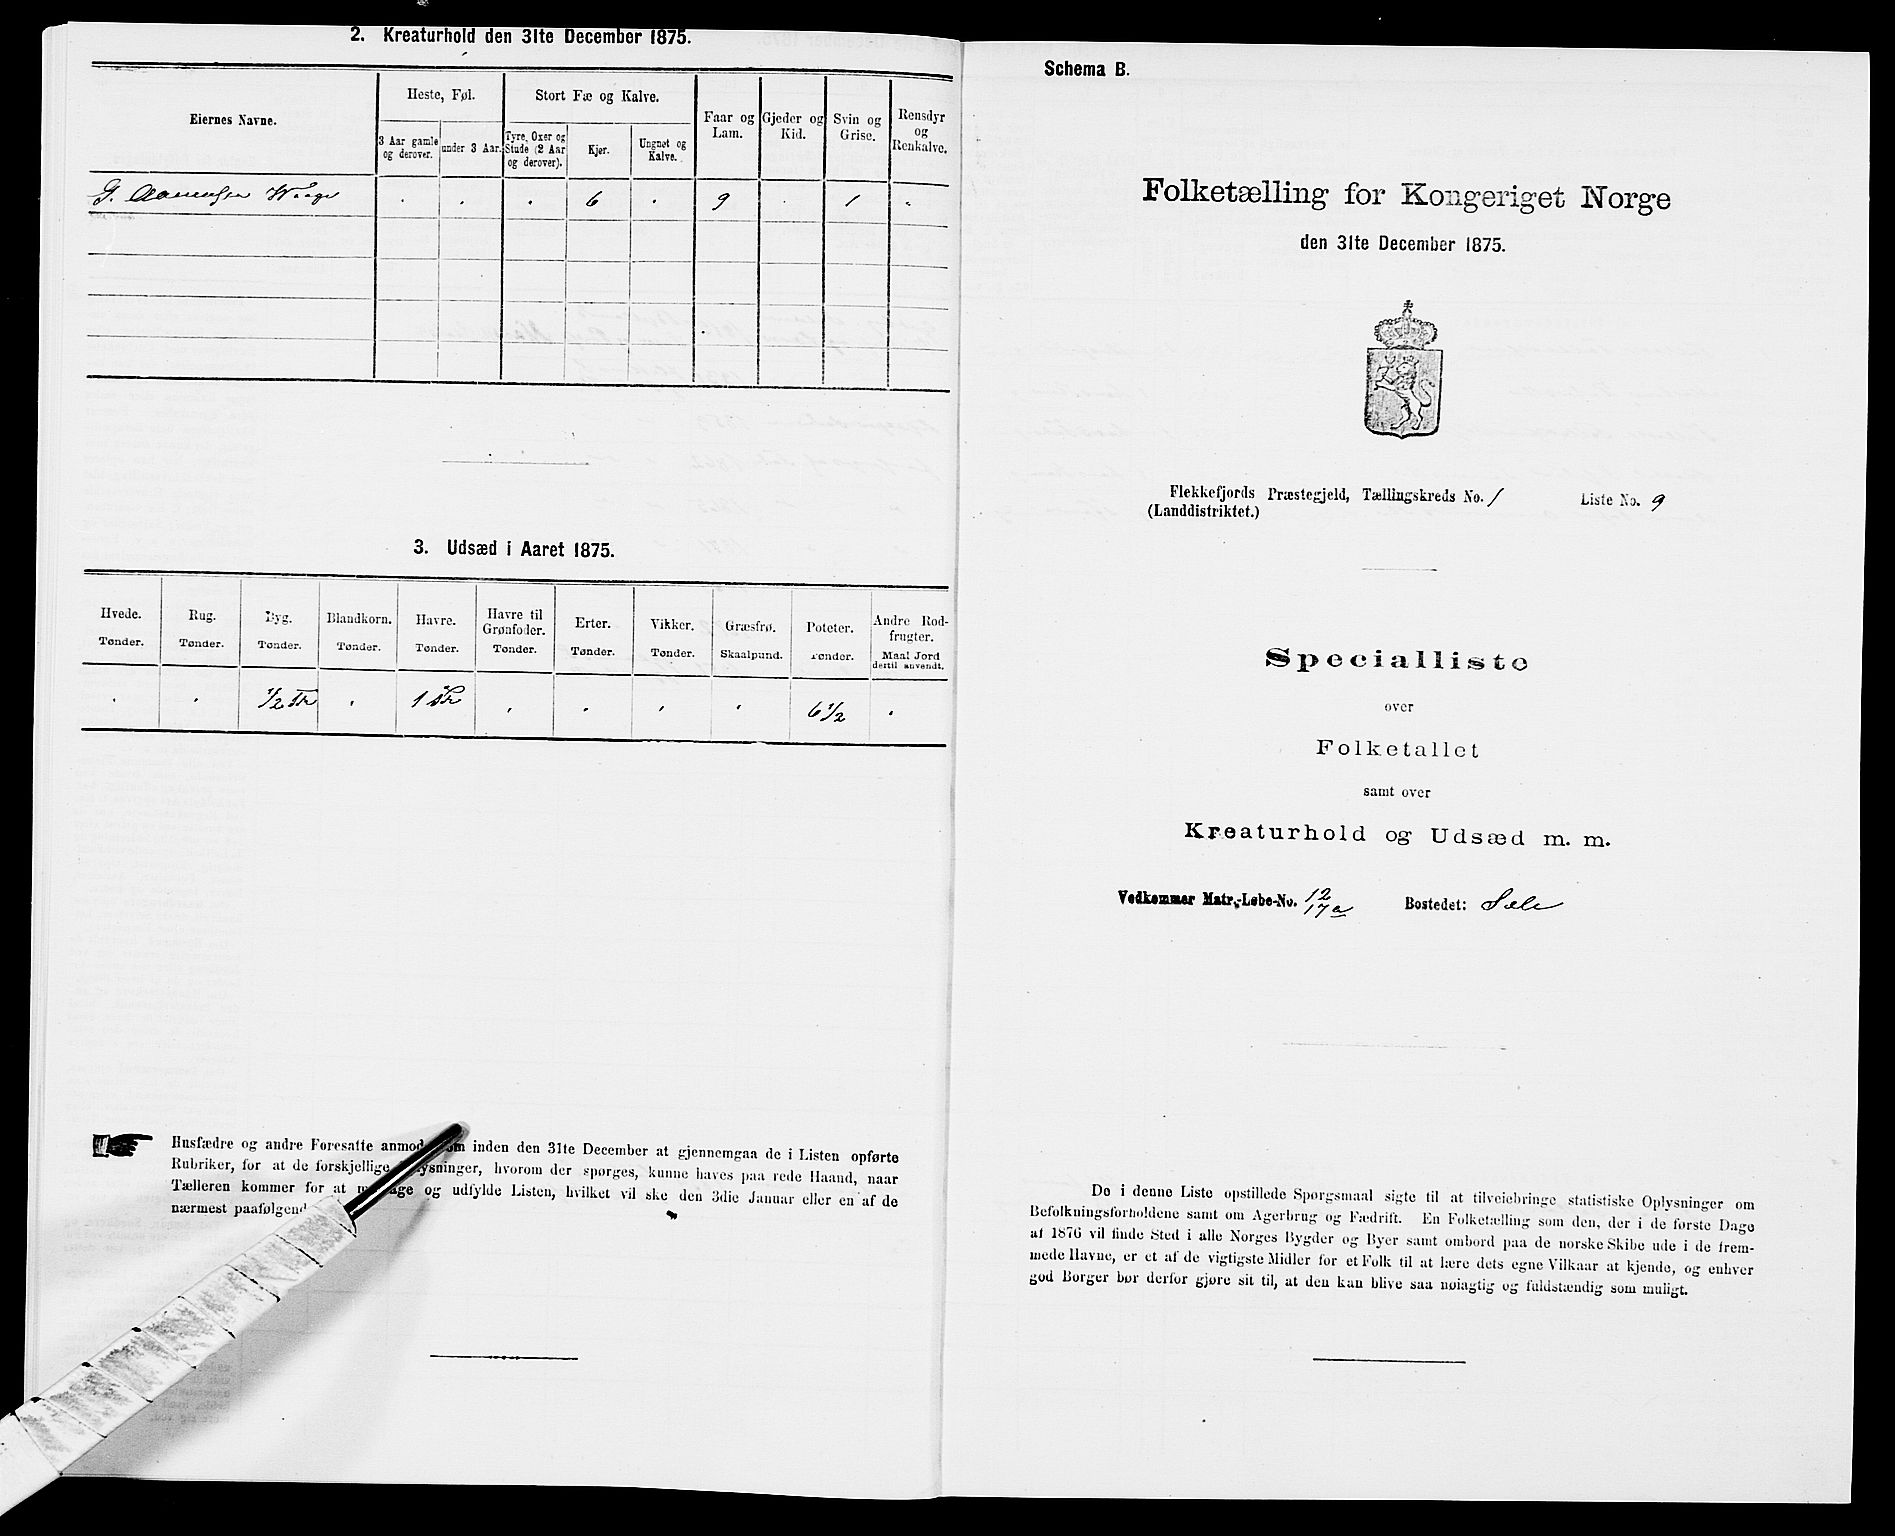 2. Kreaturhold den 31te December 1875.
Eiernes Navne.
Heste, Føl.
Stort Fæ og Kalve.
Faar og Lam.
Gjeder og Kid.
Svin og Grise.
Rensdyr og Renkalve.
3 Aar gamle og derover.
under 3 Aar.
Tyre, Oxer og Stude (2 Aar og derover).
Kjør.
Ungnøt og Kalve.
G. 6 9 1
3. Udsæd i Aaret 1875.
Hvede. Tønder.
Rug. Tønder.
Byg. Tønder.
Blandkorn. Tønder.
Havre. Tønder.
Havre til Grønfoder. Tønder.
Erter. Tønder.
Vikker. Tønder.
Græsfrø. Skaalpund.
Poteter. Tønder.
Andre Rodfrugter. Maal Jord dertil anvendt.
1/2 1 6 1/2
Husfædre og andre Foresatte inden den 31te December at gjennemgaa de i Listen opførte
Rubriker, for at de forskjellige hvorom der spørges, kunne haves paa rede Haand, naar
Tælleren kommer for at og udfylde Listen, hvilket vil ske den 3die Januar eller en af de
nærmest
Schema B.
Folketælling for Kongeriget Norge
den 31te December 1875.
Flekkefjords Præstegjeld, Tællingskreds No. 1 Liste No. 9
(Landdistriktet.)
Specialliste
over
Folketallet
samt over
Kreaturhold og Udsæd m. m.
Vedkommer Matr.-Løbe-No. 12/17a Bostedet: Sele
De i denne Liste opstillede Spørgsmaal sigte til at tilveiebringe statistiske Oplysninger om
Befolkningsforholdene samt om Agerbrug og Fædrift. En Folketælling som den, der i de første Dage
af 1876 vil finde Sted i alle Norges Bygder og Byer samt ombord paa de norske Skibe ude i de frem-
mede Havne, er et af de vigtigste Midler for et Folk til at lære dets egne Vilkaar at kjende, og enhver
god Borger bør derfor gjøre sit til, at den kan blive saa nøiagtig og fuldstændig som muligt.